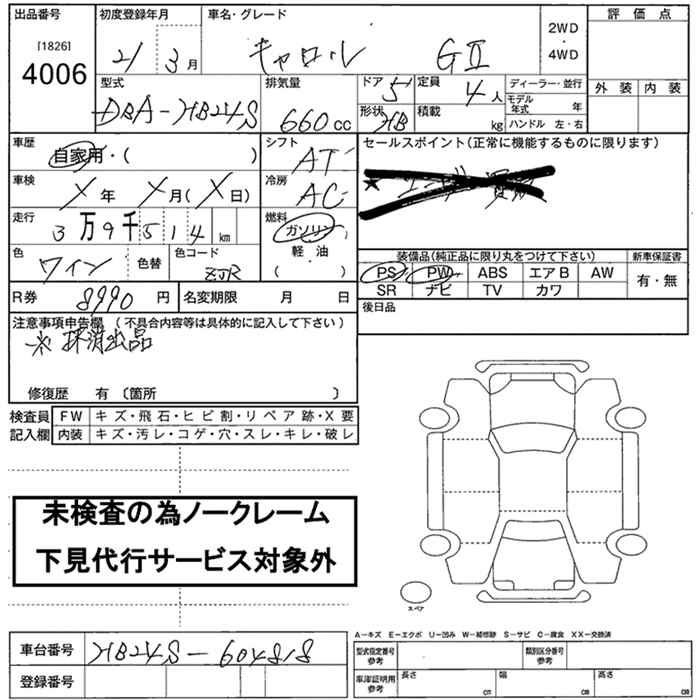 出品番号
[1826]
4006
初度登録年月
21 3月
車名・グレード
キャロル GⅡ
2WD
・
4WD
評価点
外装 内装
型式
DBA-HB24S
排気量
660cc
ドア 5
形状 HB
定員 4人
積載 kg
ディーラー・並行
モデル年式 年
ハンドル 左・右
車歴
自家用・( )
シフト
AT
セールスポイント(正常に機能するものに限ります)
車検
X年 X月(X日)
冷房
AC
走行
3万9千514km
燃料
ガソリン
軽油
( )
色
ワイン
色替
色コード
ZJR
装備品(純正品に限り丸をつけて下さい)
PS PW ABS エアB AW
SR ナビ TV カワ
新車保証書
有・無
R券 8990円
名変期限 月 日
後日品
注意事項申告欄 (不具合内容等は具体的に記入して下さい)
※ 抹消出品
修復歴 有〔箇所 〕
検査員記入欄
FW キズ・飛石・ヒビ割・リペア跡・X要
内装 キズ・汚レ・コゲ・穴・スレ・キレ・破レ
未検査の為ノークレーム
下見代行サービス対象外
スペア
A-キズ E-エクボ U-凹み W-補修跡 S-サビ C-腐食 XX-交換済
車台番号 HB24S-604818
登録番号
型式指定番号 参考
類別区分番号 参考
車庫証明用 参考
長さ cm 幅 cm 高さ cm